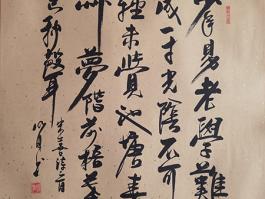 少年易老學難
成一寸光陰不可
輕未覺池塘春
草夢階前梧葉
已秋聲
朱熹詩一首